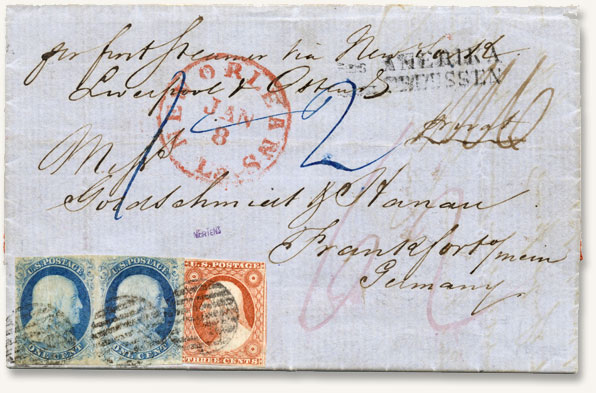 per first steamer via New York
AMERIKA
Liverpool & Ostend
UEBER PREUSSEN
NEW ORLEANS
JAN
8
La
1 2
Messrs
Goldschmidt & Hanau
MERTENS
Frankfort o/ main
Germany
U.S. POSTAGE
ONE CENT
U.S. POSTAGE
ONE CENT
U.S. POSTAGE
THREE CENTS